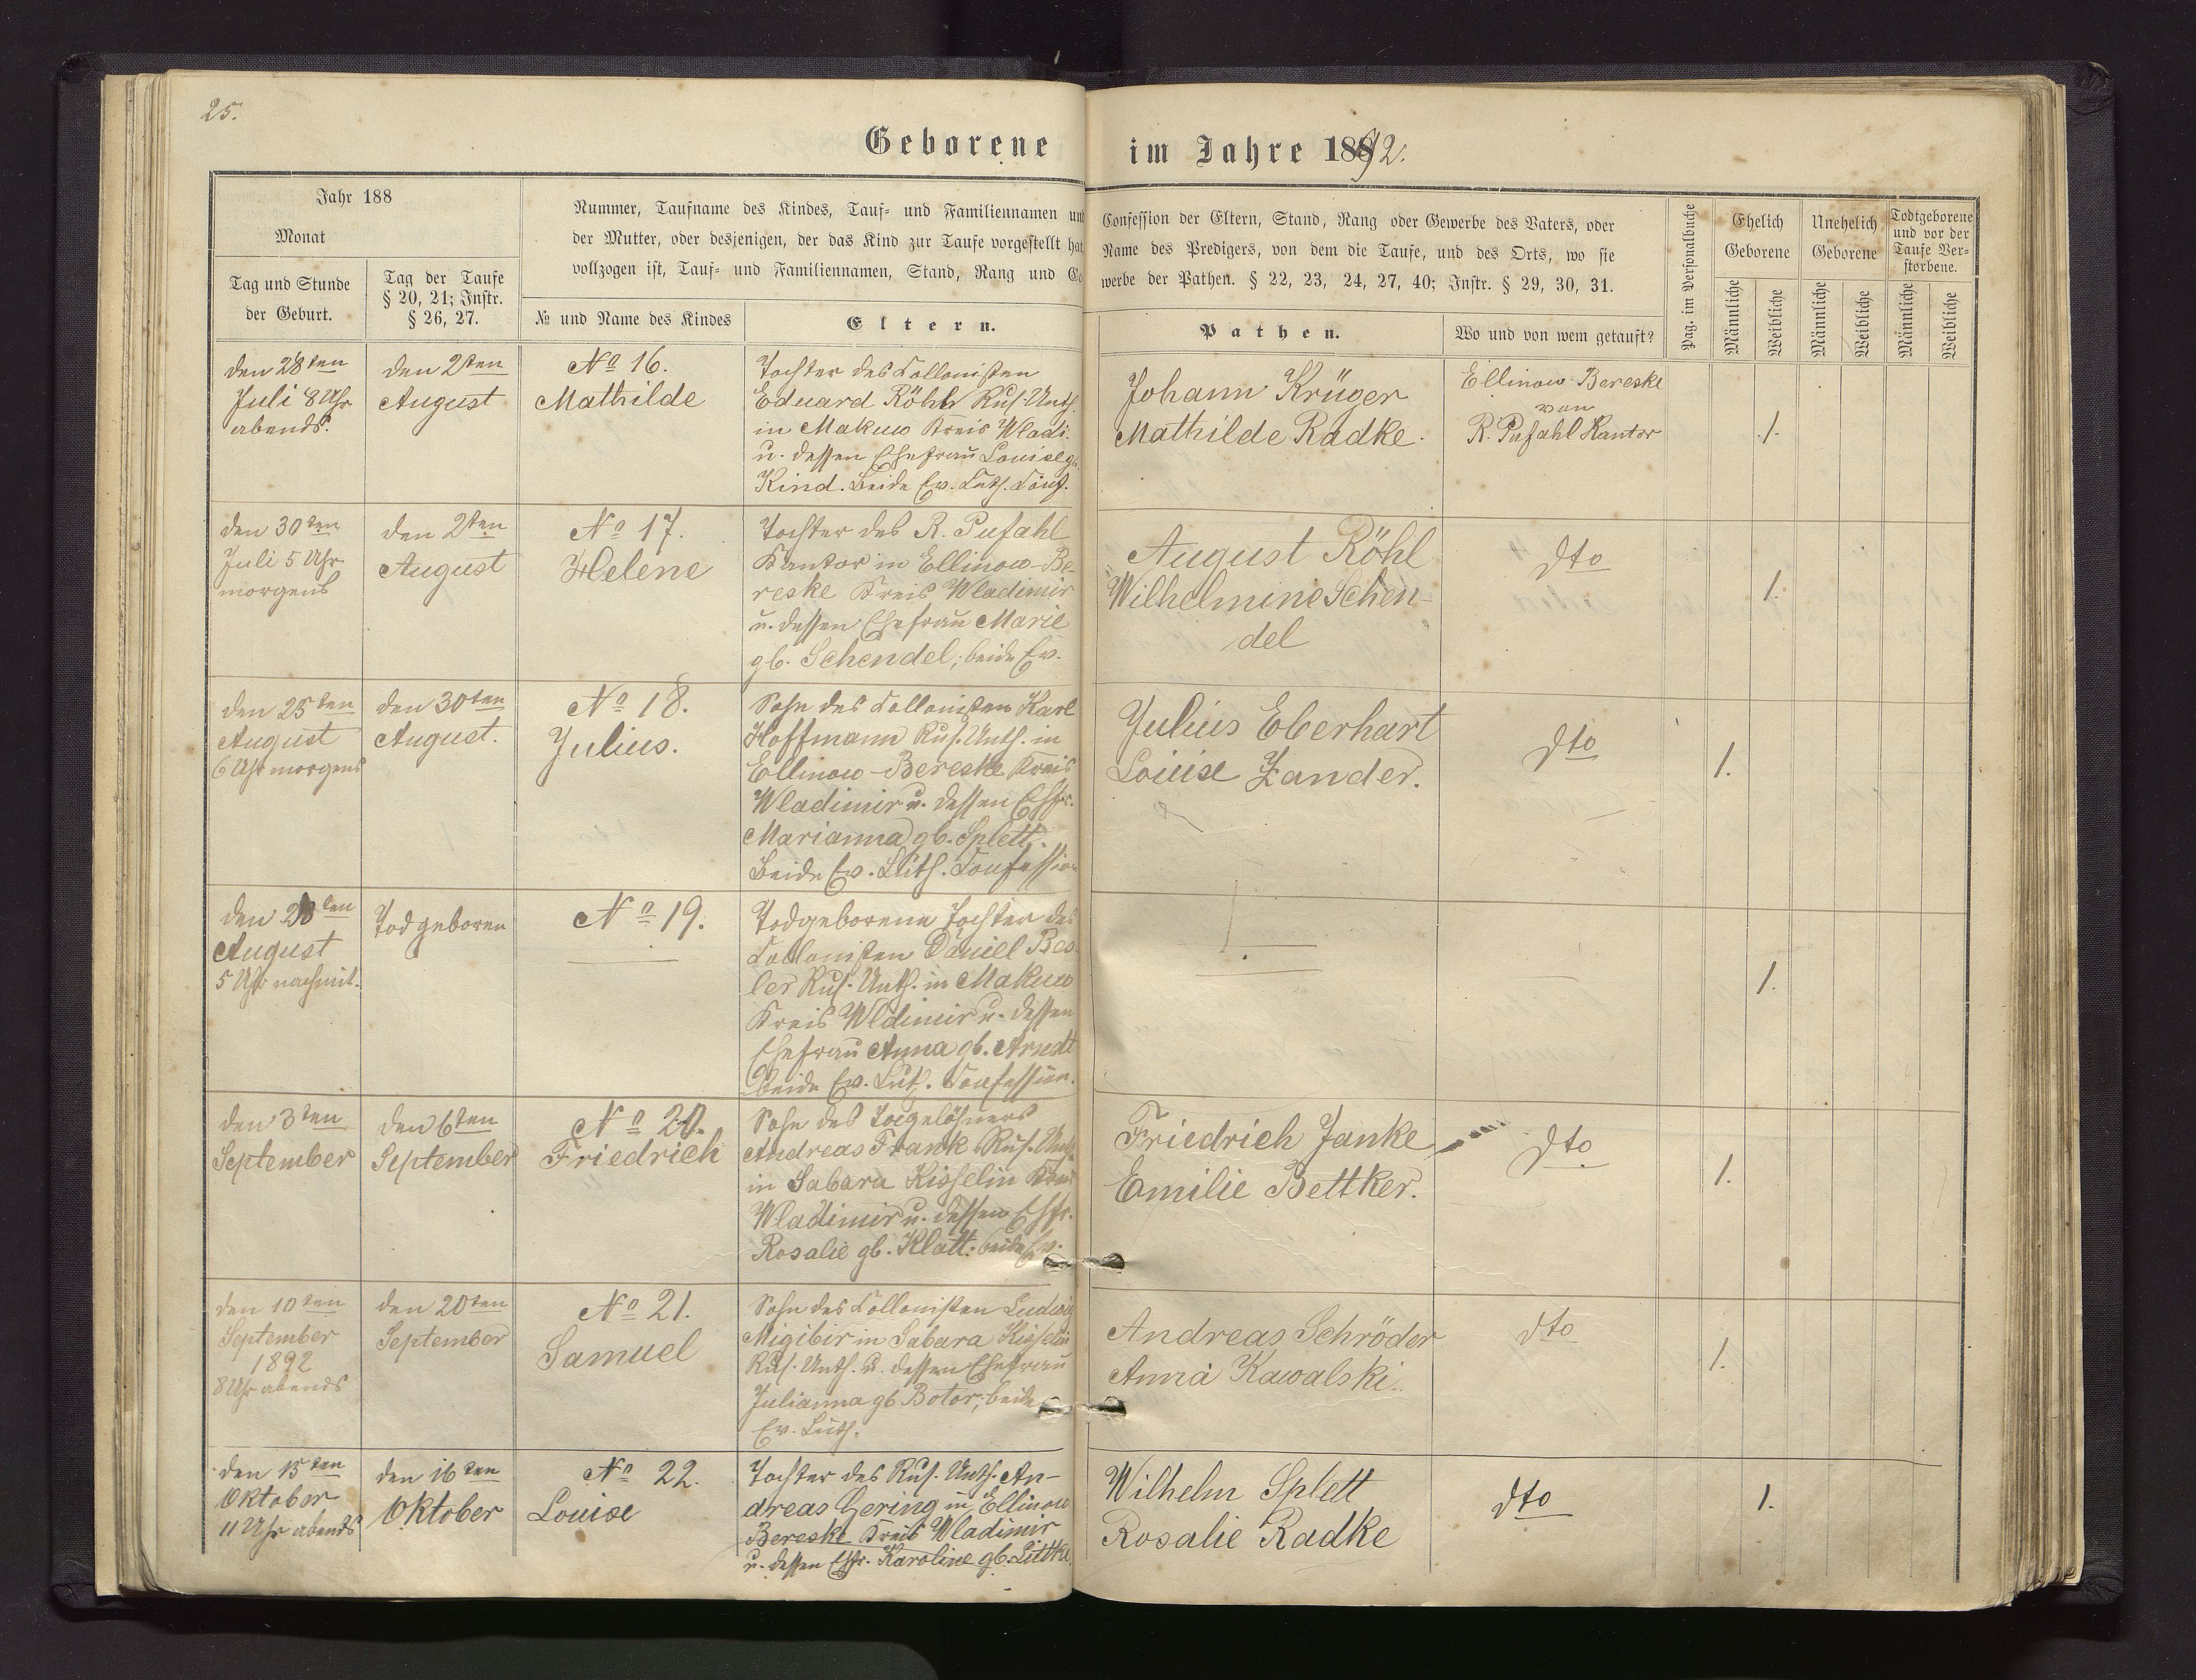 25.
Geborene im Jahre 1892.
Jahr 188
Monat
Tag und Stunde
der Geburt.
Tag der Taufe
§ 20, 21; Instr.
§ 26, 27.
Nummer, Taufname des Kindes, Tauf- und Familiennamen und
der Mutter, oder desjenigen, der das Kind zur Taufe vorgestellt hat
vollzogen ist, Tauf- und Familiennamen, Stand, Rang und Ge
№ und Name des Kindes
Eltern.
Confession der Eltern, Stand, Rang oder Gewerbe des Vaters, oder
Name des Predigers, von dem die Taufe, und des Orts, wo sie
werbe der Pathen. § 22, 23, 24, 27, 40; Instr. § 29, 30, 31.
Pathen.
Wo und von wem getauft?
Pag. im Personalbuche
Ehelich
Geborene
Unehelich
Geborene
Todtgeborene
und vor der
Taufe Ver-
storbene.
Männliche
Weibliche
Männliche
Weibliche
Männliche
Weibliche
den 28ten
Juli 8 Uhr
abends.
den 2ten
August
No 16.
Mathilde
Tochter des Collonisten
Eduard Röhl Rus. Unth.
in Makuw Kreis Wladi.
u. dessen Ehefrau Louise gb.
Kind. Beide Ev. Luth. Conf.
Johann Krüger
Mathilde Radke.
Ellinow Bereske
von
R. Pufahl Kantor
1.
den 30ten
Juli 5 Uhr
morgens
den 2ten
August
No 17.
Helene
Tochter des R. Pufahl
Kantor in Ellinow-Be-
reske Kreis Wladimir
u. dessen Ehefrau Marie
gb. Schendel; beide Ev.
August Röhl
Wilhelmine Schen-
del
dto
1.
den 25ten
August
6 Uhr morgens
den 30ten
August.
No 18.
Julius.
Sohn des Collonisten Karl
Hoffmann Rus. Unth. in
Ellinow-Bereske Kreis
Wladimir u. dessen Ehfr.
Marianna gb. Splett.
Beide Ev. Luth. Confession
Julius Eberhart
Louise Zander.
dto
1.
den 28ten
August
5 Uhr nachmit.
Todgeboren
No 19.
Todgeborene Tochter des
Collonisten Daniel Bes
ler Rus. Unth. in Makuw
Kreis Wldimir u. dessen
Ehefrau Anna gb. Arndt
beide Ev. Luth. Confession.
1.
den 3ten
September
den 6ten
September
No 20.
Friedrich
Sohn des Tagelöhners
Andreas Frank Rus. Unth.
in Sabara Kisselin Kreis
Wladimir u. dessen Ehfr.
Rosalie gb. Klatt. beide Ev.
Friedrich Janke
Emilie Bettker.
dto
1.
den 10ten
September
1892
8 Uhr abends
den 20ten
September
No 21.
Samuel
Sohn des Collonisten Ludwig
Migibir in Sabara Kisselin
Rus. Unth. u. dessen Ehefrau
Julianna gb Botor; beide
Ev. Luth.
Andreas Schröder
Anna Kawalski.
dto
1.
den 15ten
Oktober
11 Uhr abends
den 16ten
Oktober
No 22.
Louise
Tochter des Rus. Unth. An-
dreas Gering in Ellinow
Bereske Kreis Wladimir
u. dessen Ehfr. Karoline gb. Littke.
Wilhelm Splett
Rosalie Radke
dto
1.